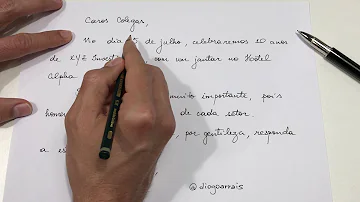 Caros Colegas,
No dia 15 de julho, celebraremos 10 anos
de XYZ Invest com um jantar no Hotel
Alpha
mento importante, pois
home de cada setor.
, por gentileza, responda
a es
@diogoarrais